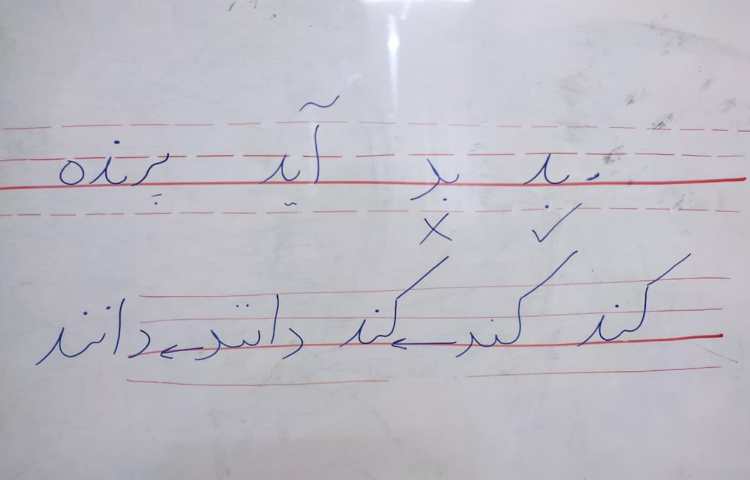 بد بد آید پرنده
✓ ×
کند کند ← کند دانند ← دانند